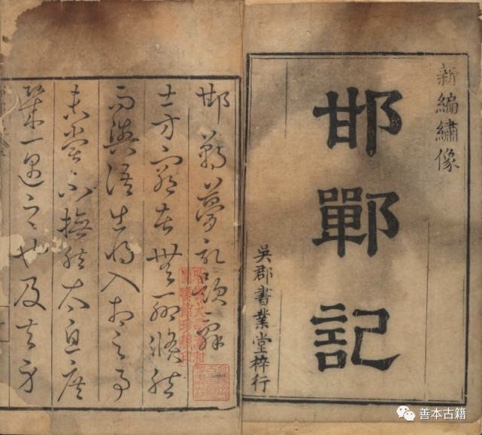 新編繡像
邯鄲記
吳郡書業堂梓行
邯鄲夢記題辭
士方窮苦無聊倏然
而與語出將入相之事
未嘗不憮然太息庶
幾一遇之也及夫身
善本古籍